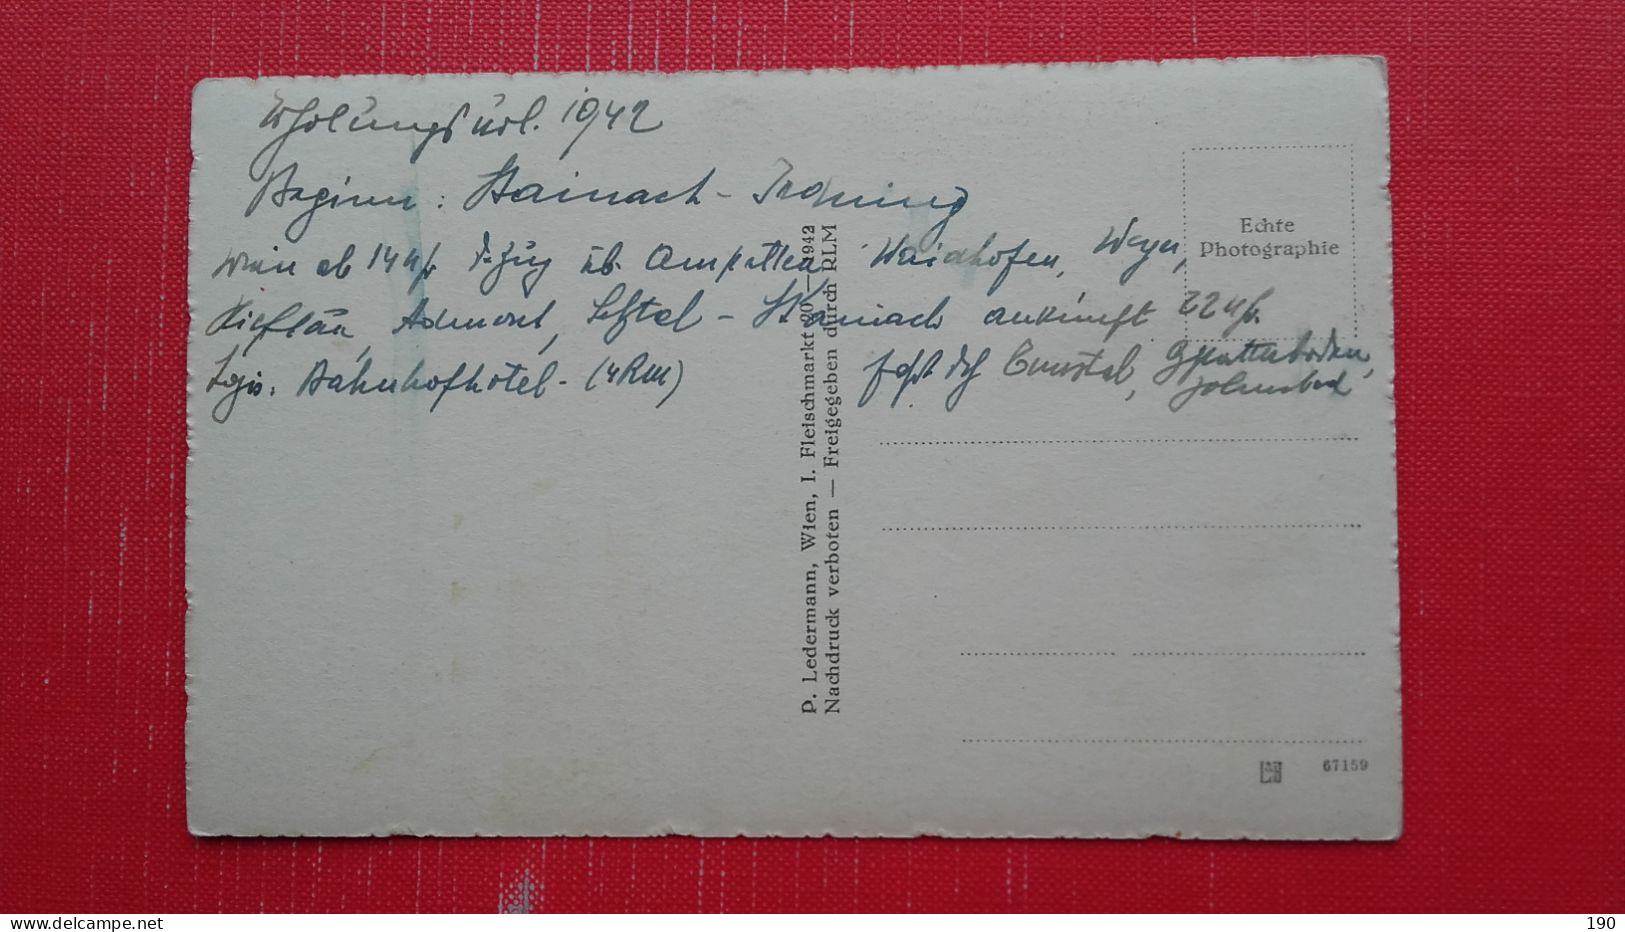 Erholungsurl. 1942
Beginn: Stainach-Irdning
Wien ab 14 Uhr D-Zug üb. Amstetten Waidhofen, Weyer,
Hieflau, Admont, Selztal - Stainach ankunft 22 Uhr.
Logis. Bahnhofhotel - (4 RM)
Fahrt dch Ennstal, Gstatterboden,
Echte
Photographie
P. Ledermann, Wien, I. Fleischmarkt 20 — 1942
Nachdruck verboten — Freigegeben durch RLM
67159
delcampe.net
190